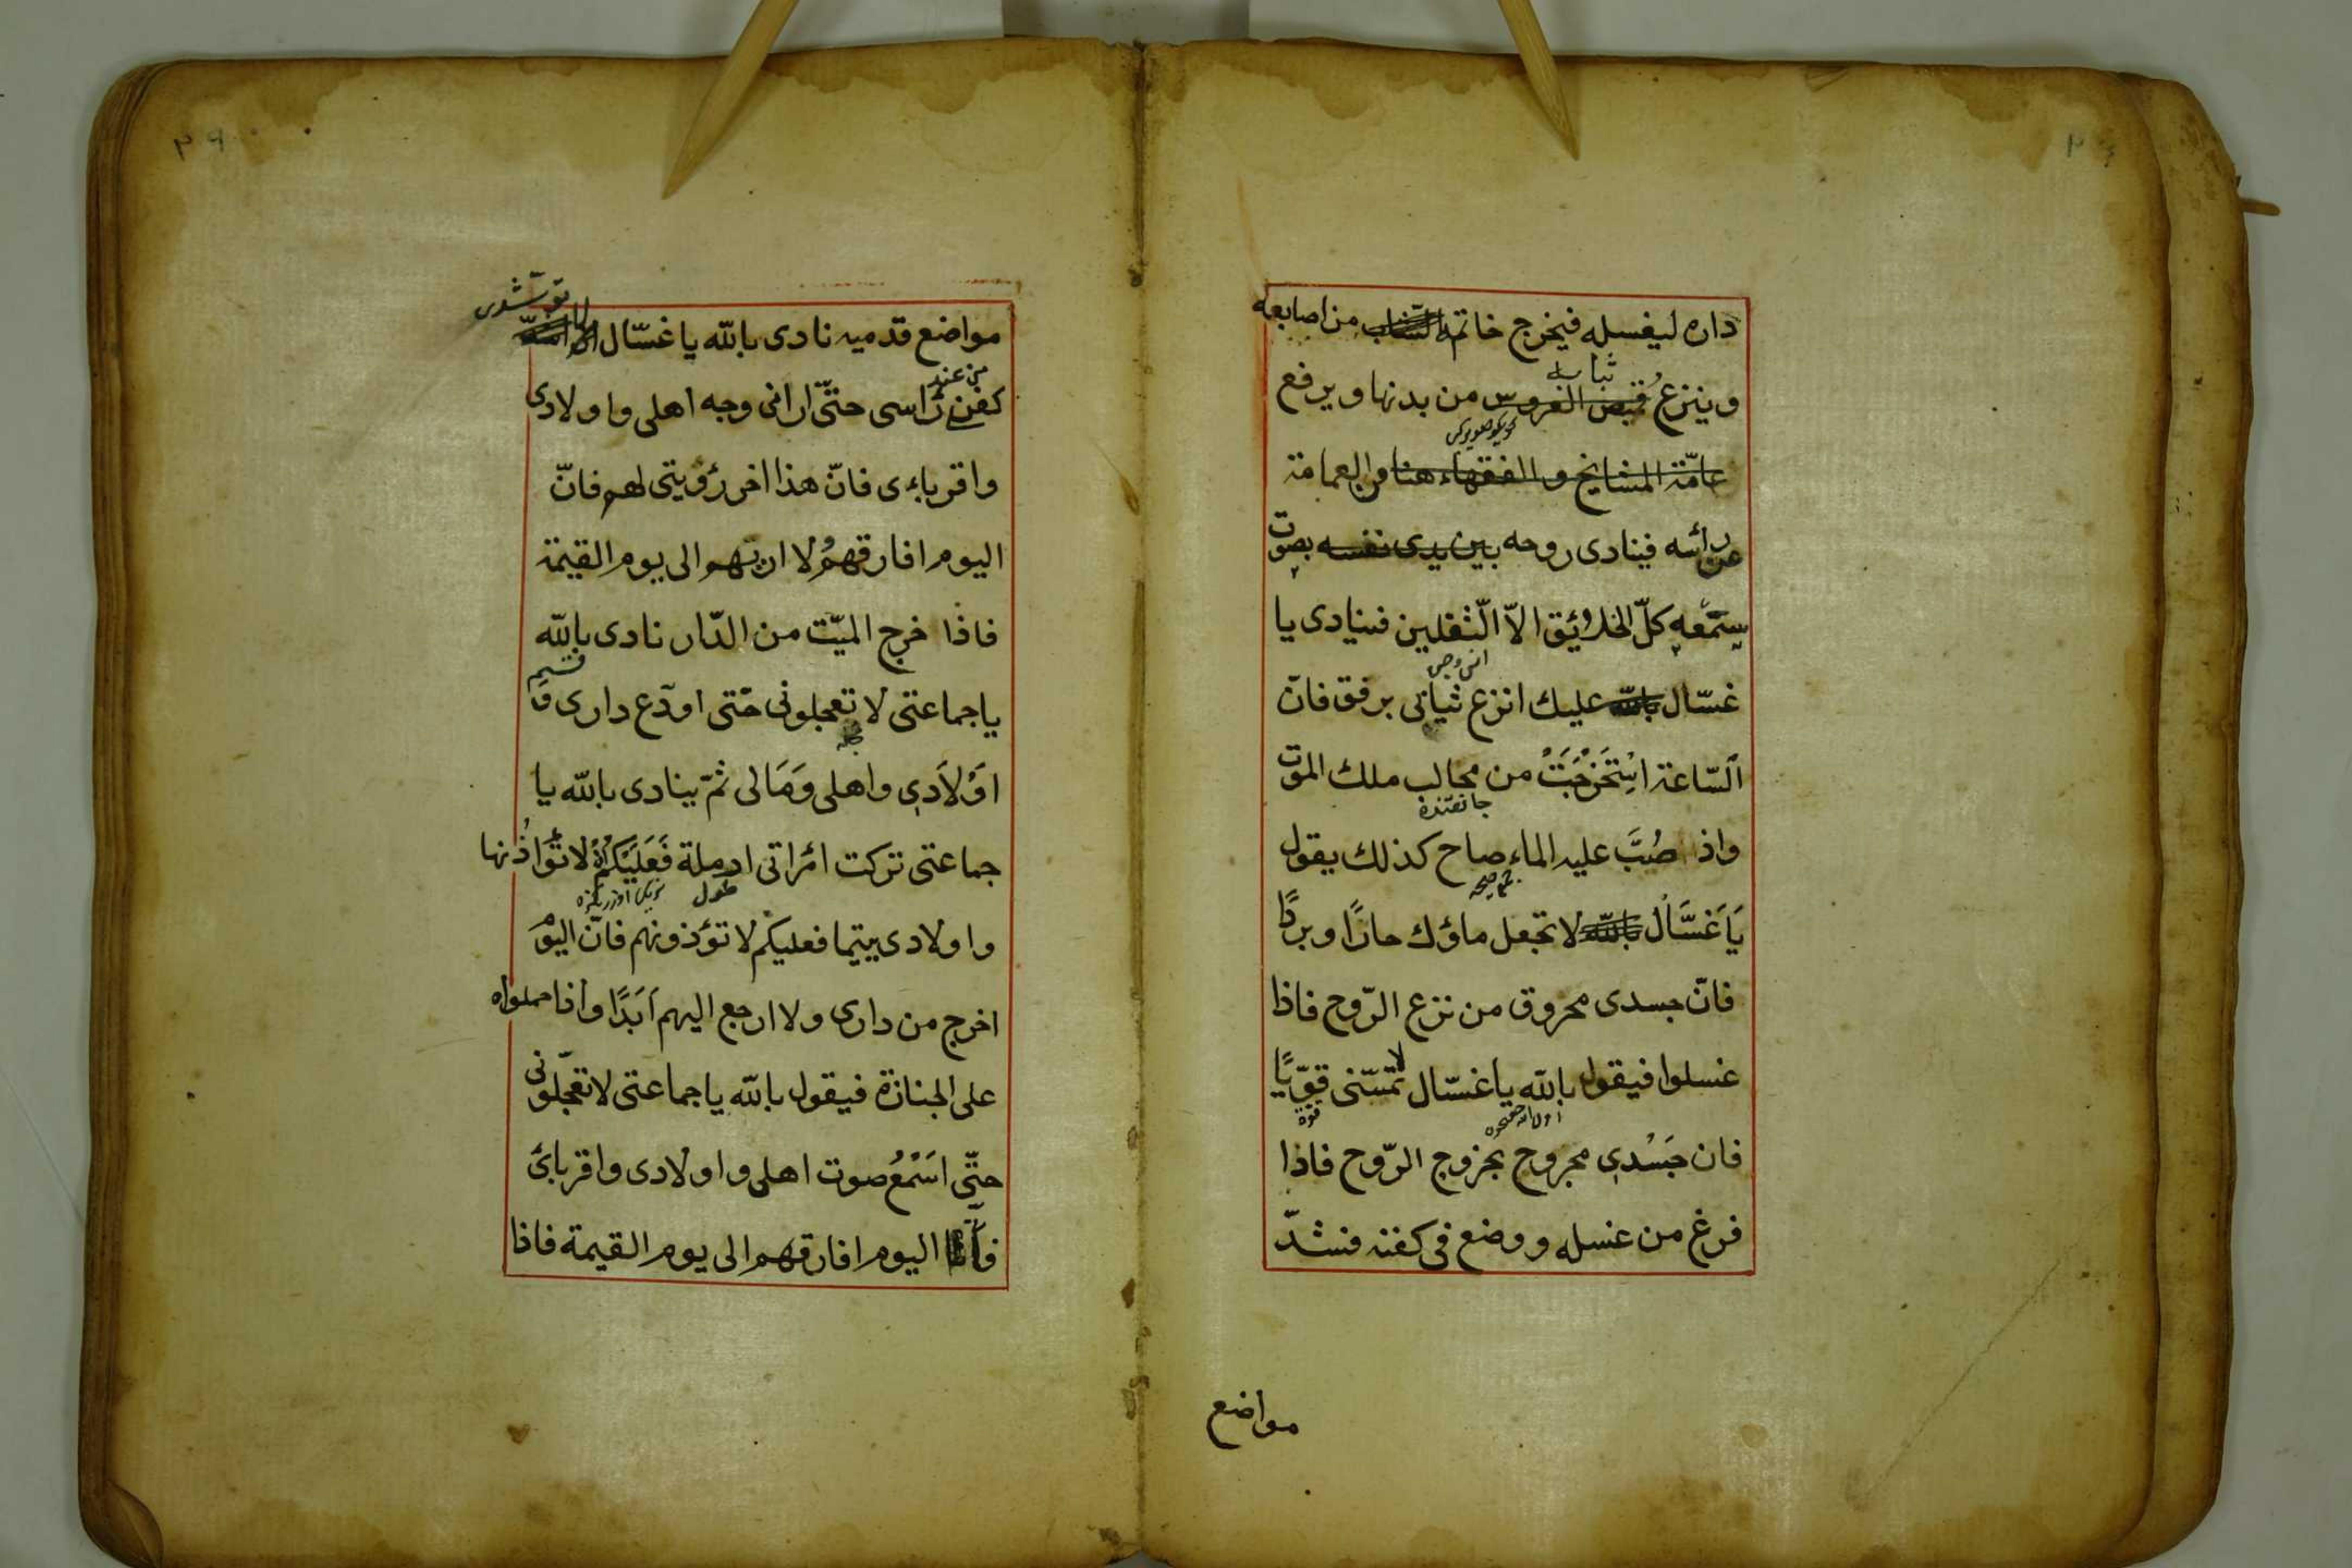 داره ليغسله فيخرج خاتمه الشاب من اصابعه
ثيابه
وينزع قميص العروس من بدنها ويرفع
عامّة المشايخ والفقهاء هنا والعمامة
عن رأسه فينادى روحه بين يدى نفسه بصوت
يستمعه كلّ الخلائق الاّ الّثقلين فينادى يا
غسّال باللّه عليك انزع ثيابى برفق فانّ
اَلسّاعة اسْتَخْرَجَتْ من مخالب ملك الموت
واذ صُبَّ عليه الماء صاح كذلك يقول
يَا غَسَّالُ باللّه لا تجعل ماؤك حارًا وبردًا
فانّ جسدى محروق من نزع الرّوح فاذا
غسلوا فيقول باللّه يا غسّال لا تمسّنى قوّيًا
قوة
فان جَسْدِى مجروح بخروج الرّوح فاذا
فرغ من غسله ووضع فى كفنه فشدّ
مواضع
مواضع قدميه نادى باللّه يا غسّال
من عند
كفن رَاسى حتّى ارانى وجه اهلى واولادى
واقرباءى فانّ هذا اخر رؤيتى لهم فانّ
اليوم افارقهمُ ولا ارىهم الى يوم القيمة
فاذا خرج الميّت من الدّار نادى باللّه
يا جماعتى لا تعجلونى حتّى اودّع دارى و
اَوْلَادِى واهلى وَمَالى ثمّ ينادى باللّه يا
جماعتى تركت امْراتى ارملة فَعَلَيْكُمْ لا تُؤَاذُنها
طول
واولادى يتيما فعليكم لا تؤذونهم فانّ اليوْمَ
اخرج من دارى ولا ارجع اليهم اَبَدًا واذا حملواه
على الجنازة فيقول باللّه يا جماعتى لا تعجّلونى
حتّى اسَمْعُ صوت اهلى واولادى واقربائ
فانّ اليوم افارقهم الى يوم القيمة فاذا